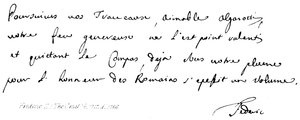 Poursuives vos Traveaux, aimable algarotti,
votre feu genereuse ne l'est point ralenti,
et quictant le Compas, deja sous votre plume
pour l'honneur des Romains s'epessit un volume.
Federic